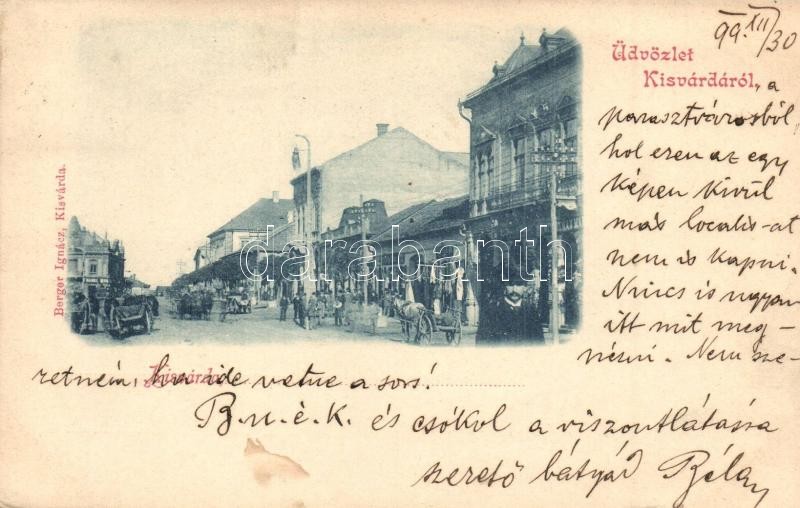 99 XII/30
Üdvözlet
Kisvárdáról, a
parasztvárosból,
hol ezen az egy
képen kivül
más localis-at
nem is kapni.
Nincs is ugyan
itt mit meg-
nézni. Nem sze-
retném, ha ide vetne a sors!
Kisvárda
B. u. é. k. és csókol a viszontlátásra
szerető bátyád Béla
Berger Ignácz, Kisvárda.
darabanth